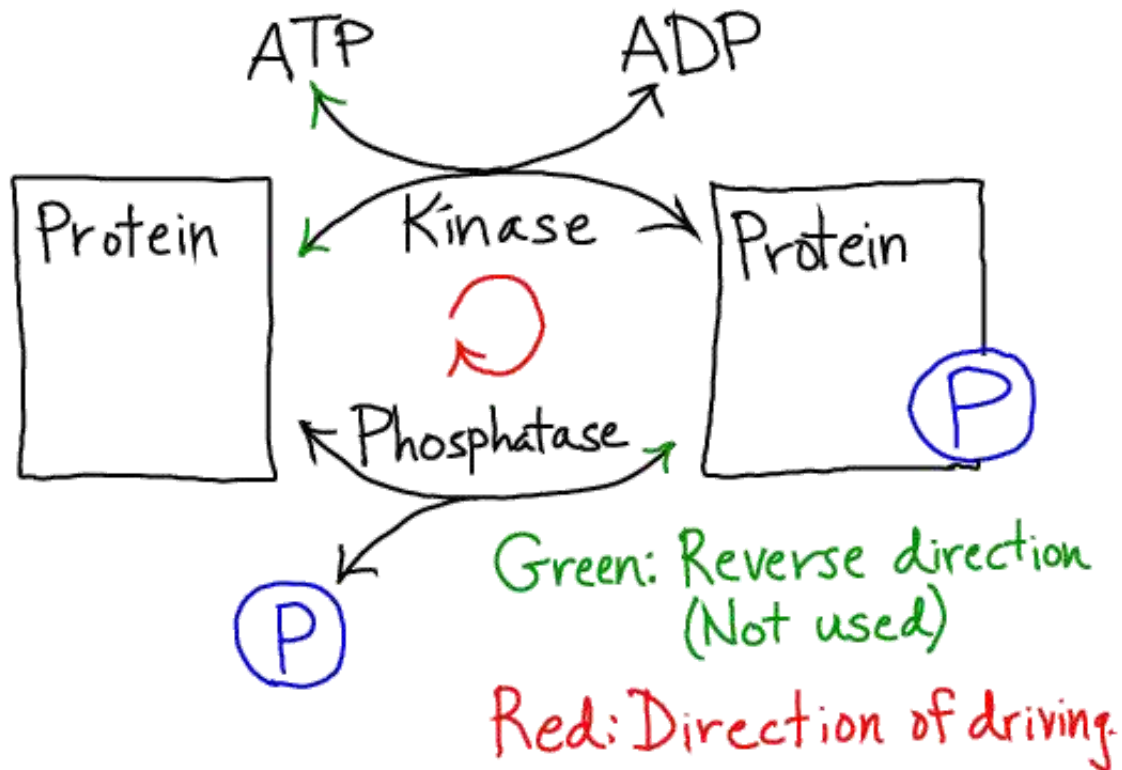 ATP
ADP
Protein
Kinase
Protein
P
Phosphatase
P
Green: Reverse direction
(Not used)
Red: Direction of driving.